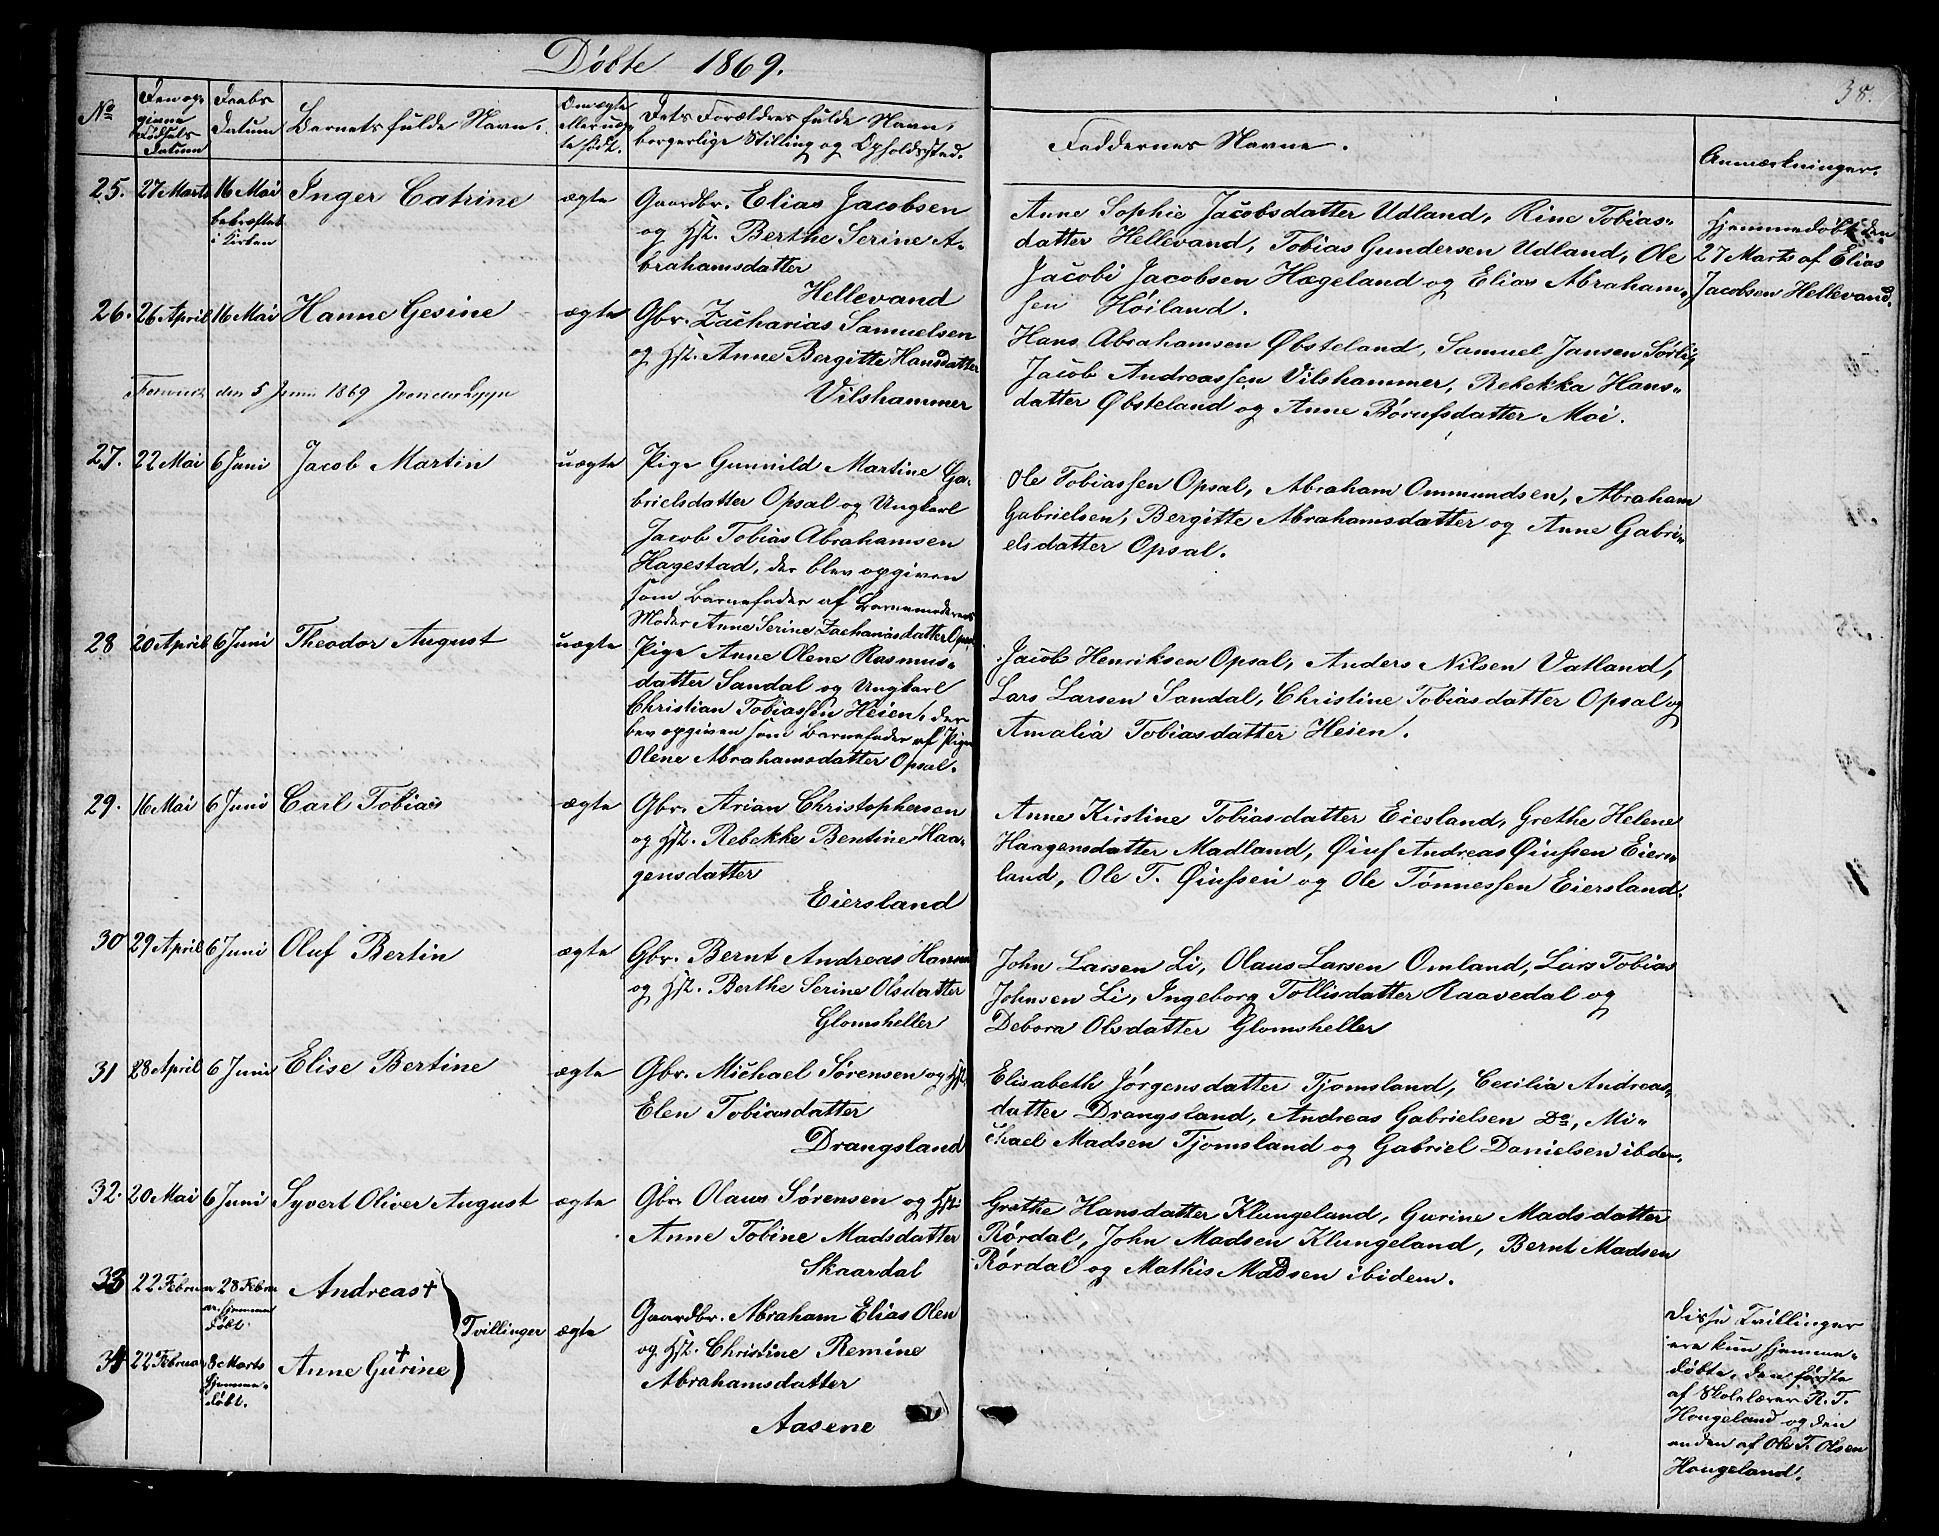 Döbte 1869.
38.
No
Den op-
givne
Födsels
Datum
Daabs
Datum
Barnets fulde Navn.
Om ægte
eller uæg-
te født.
Dets Forældres fulde Navn,
borgerlige Stilling og Opholdssted.
Faddernes Navne.
Anmærkninger.
25. 27 Marts 16 Mai Inger Catrine ægte
bekræftet
i Kirken
Gaardbr. Elias Jacobsen
og Hst. Berthe Serine A-
brahamsdatter
Hellevand
Anne Sophie Jacobsdatter Udland, Rine Tobias-
datter Hellevand, Tobias Gundersen Udland, Ole
Jacobi Jacobsen Hægeland og Elias Abraham-
sen Höiland.
Hjemmedöbt den
27 Marts af Elias
Jacobsen Hellevand.
26. 26 April 16 Mai Hanne Gesine ægte
Gbr. Zacharias Samuelsen
og Hst. Anne Bergitte Hansdatter
Vilshammer
Hans Abrahamsen Øbsteland, Samuel Jansen Sörli,
Jacob Andreassen Vilshammer, Rebekka Hans-
datter Øbsteland og Anne Börufsdatter Moi.
den 5 Juni 1869
27. 22 Mai 6 Juni Jacob Martin uægte
Pige Gunnild Martine Ga-
brielsdatter Opsal og Ungkarl
Jacob Tobias Abrahamsen
Hagestad, der blev opgiven
som Barnefader af Barnemoderens
Moder Anne Serine Zachariasdatter Opsal
Ole Tobiassen Opsal, Abraham Ommundsen, Abraham
Gabrielsen, Bergitte Abrahamsdatter og Anne Gabri-
elsdatter Opsal.
28 20 April 6 Juni Theodor August uægte
Pige Anne Olene Rasmus-
datter Sandal og Ungkarl
Christian Tobiassen Heien, der
blev opgiven som Barnefader af Pige
Olene Abrahamsdatter Opsal.
Jacob Henriksen Opsal, Anders Nilsen Vatland,
Lars Larsen Sandal, Christine Tobiasdatter Opsal og
Amalia Tobiasdatter Heien.
29. 16 Mai 6 Juni Carl Tobias ægte
Gbr. Arian Christophersen
og Hst. Rebekke Bentine Haa-
gensdatter
Eiersland
Anne Kirstine Tobiasdatter Eiesland, Grethe Helene
Haagensdatter Madland, Øiuf Andreas Øiufsen Eiers-
land, Ole T. Øiufsen og Ole Tönnessen Eiersland.
30 29 April 6 Juni Oluf Bertin ægte
Gbr. Bernt Andreas Hansen
og Hst. Berthe Serine Olsdatter
Glomsheller
John Larsen Li, Olaus Larsen Omland, Lars Tobias
Johnsen Li, Ingeborg Tollisdatter Raavedal og
Debora Olsdatter Glomsheller
31 28 April 6 Juni Elise Bertine ægte
Gbr. Michael Sörensen og Hst.
Elen Tobiasdatter
Drangsland
Elisabeth Jörgensdatter Tjomsland, Cecilia Andreas-
datter Drangsland, Andreas Gabrielsen Do, Mi-
chael Madsen Tjomsland og Gabriel Danielsen ibdem.
32. 20 Mai 6 Juni Syvert Oliver August ægte
Gbr. Olaus Sörensen og Hst.
Anne Tobine Madsdatter
Skaardal
Grethe Hansdatter Klungeland, Gurine Madsdatter
Rördal, John Madsen Klungeland, Bernt Madsen
Rördal og Mathis Madsen ibidem.
33 22 Februar 28 Febru- Andreas +
ar. hjemme
döbt.
Tvillinger ægte
34 22 Februar 8 Marts Anne Gurine +
Hjemme-
döbt.
Gaardbr. Abraham Elias Olsen
og Hst. Christine Remine
Abrahamsdatter
Aasene
Disse Tvillinger
ere kun hjemme-
döbte, den förste
af Skolelærer R. T.
Hougeland og den
anden af Ole T. Olsen
Hougeland.